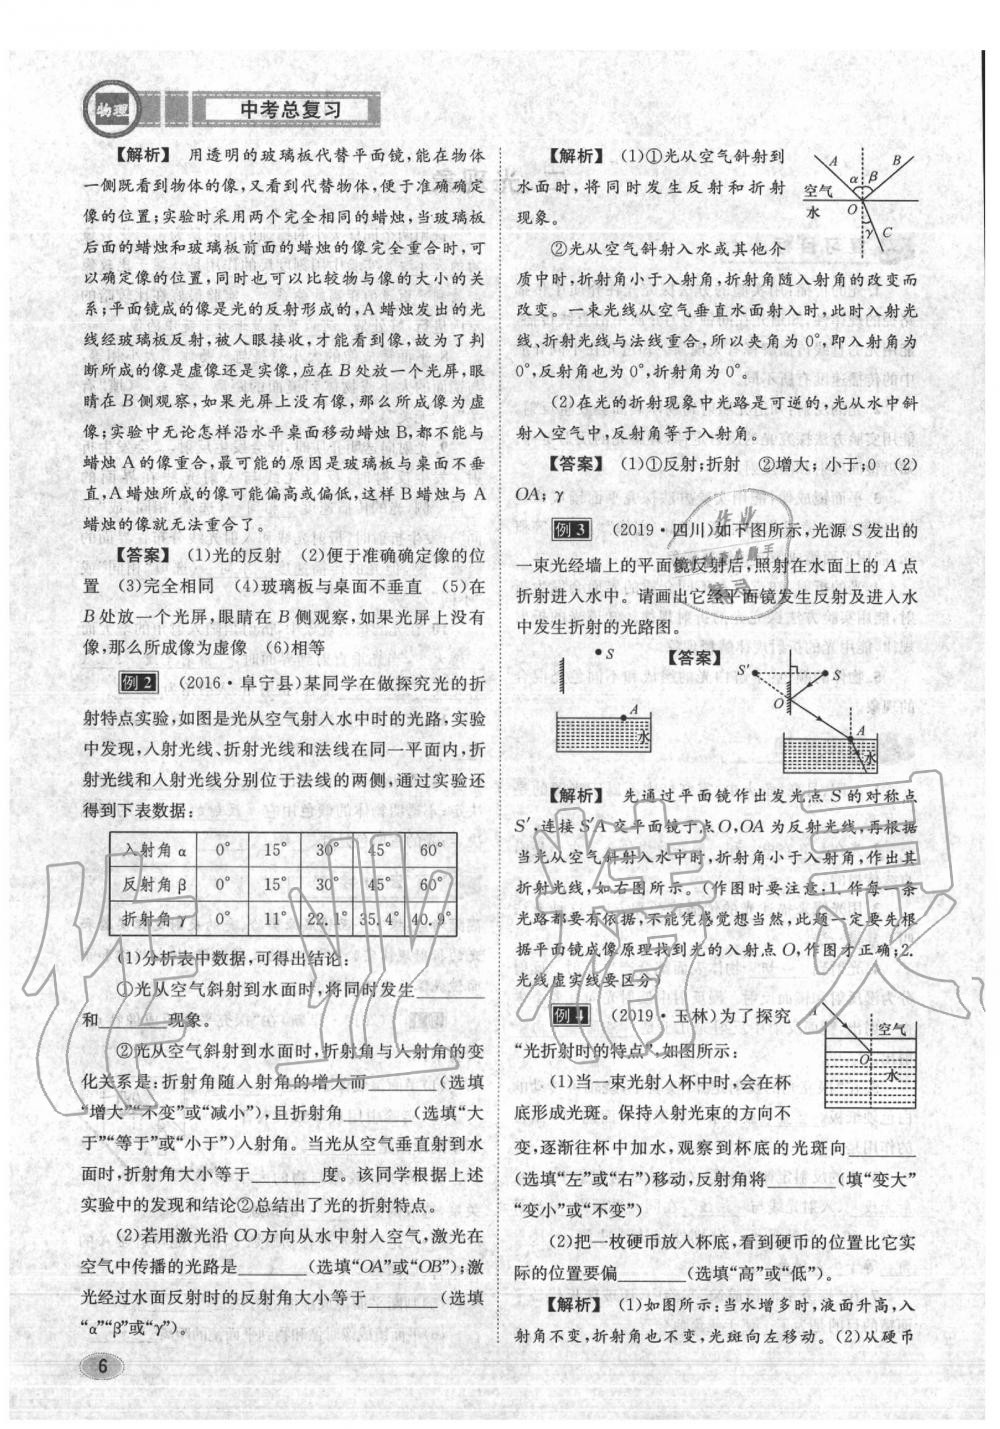 物理
中考总复习
【解析】 用透明的玻璃板代替平面镜,能在物体
一侧既看到物体的像,又看到代替物体,便于准确确定
像的位置;实验时采用两个完全相同的蜡烛,当玻璃板
后面的蜡烛和玻璃板前面的蜡烛的像完全重合时,可
以确定像的位置,同时也可以比较物与像的大小的关
系;平面镜成的像是光的反射形成的,A蜡烛发出的光
线经玻璃板反射,被人眼接收,才能看到像,故为了判
断所成的像是虚像还是实像,应在B处放一个光屏,眼
睛在B侧观察,如果光屏上没有像,那么所成像为虚
像;实验中无论怎样沿水平桌面移动蜡烛B,都不能与
蜡烛A的像重合,最可能的原因是玻璃板与桌面不垂
直,A蜡烛所成的像可能偏高或偏低,这样B蜡烛与A
蜡烛的像就无法重合了。
【答案】 (1)光的反射 (2)便于准确确定像的位
置 (3)完全相同 (4)玻璃板与桌面不垂直 (5)在
B处放一个光屏,眼睛在B侧观察,如果光屏上没有
像,那么所成像为虚像 (6)相等
例2 (2016·阜宁县)某同学在做探究光的折
射特点实验,如图是光从空气射入水中时的光路,实验
中发现,入射光线、折射光线和法线在同一平面内,折
射光线和入射光线分别位于法线的两侧,通过实验还
得到下表数据:
入射角α 0° 15° 30° 45° 60°
反射角β 0° 15° 30° 45° 60°
折射角γ 0° 11° 22.1° 35.4° 40.9°
(1)分析表中数据,可得出结论:
①光从空气斜射到水面时,将同时发生______
和______现象。
②光从空气斜射到水面时,折射角与入射角的变
化关系是:折射角随入射角的增大而______(选填
“增大”“不变”或“减小”),且折射角______(选填“大
于”“等于”或“小于”)入射角。当光从空气垂直射到水
面时,折射角大小等于______度。该同学根据上述
实验中的发现和结论②总结出了光的折射特点。
(2)若用激光沿CO方向从水中射入空气,激光在
空气中传播的光路是______(选填“OA”或“OB”);激
光经过水面反射时的反射角大小等于______(选填
“α”“β”或“γ”)。
6
【解析】 (1)①光从空气斜射到
水面时,将同时发生反射和折射
现象。
A B
α β
空气
水 O
γ C
②光从空气斜射入水或其他介
质中时,折射角小于入射角,折射角随入射角的改变而
改变。一束光线从空气垂直水面射入时,此时入射光
线、折射光线与法线重合,所以夹角为0°,即入射角为
0°,反射角也为0°,折射角为0°。
(2)在光的折射现象中光路是可逆的,光从水中斜
射入空气中,反射角等于入射角。
【答案】 (1)①反射;折射 ②增大;小于;0 (2)
OA;γ
例3 (2019·四川)如下图所示,光源S发出的
一束光经墙上的平面镜反射后,照射在水面上的A点
折射进入水中。请画出它经平面镜发生反射及进入水
中发生折射的光路图。
S
A
水
【答案】
S′ S
O
A
水
【解析】 先通过平面镜作出发光点S的对称点
S′,连接S′A交平面镜于点O,OA为反射光线,再根据
当光从空气斜射入水中时,折射角小于入射角,作出其
折射光线,如右图所示。(作图时要注意:1.作每一条
光路都要有依据,不能凭感觉想当然,此题一定要先根
据平面镜成像原理找到光的入射点O,作图才正确;2.
光线虚实线要区分)
例4 (2019·玉林)为了探究
“光折射时的特点”,如图所示:
A
空气
O
水
(1)当一束光射入杯中时,会在杯
底形成光斑。保持入射光束的方向不
变,逐渐往杯中加水,观察到杯底的光斑向______
(选填“左”或“右”)移动,反射角将______(填“变大”
“变小”或“不变”)
(2)把一枚硬币放入杯底,看到硬币的位置比它实
际的位置要偏______(选填“高”或“低”)。
【解析】 (1)如图所示:当水增多时,液面升高,入
射角不变,折射角也不变,光斑向左移动。(2)从硬币
作业精灵